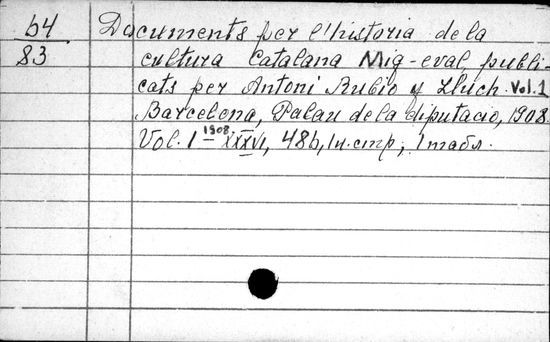 64 Documents per l'historia de la
83 cultura Catalana Mig-eval, publi-
cats per Antoni Rubio y Lluch. Vol. 1
Barcelona, Palau de la diputacio, 1908.
Vol. I 1908, XXXVI, 486, 1н. стр; 1 табл.